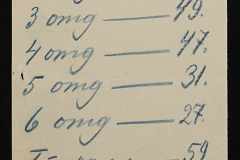 3 отд — 49.
4 отд — 47.
5 отд — 31.
6 отд — 27.
59